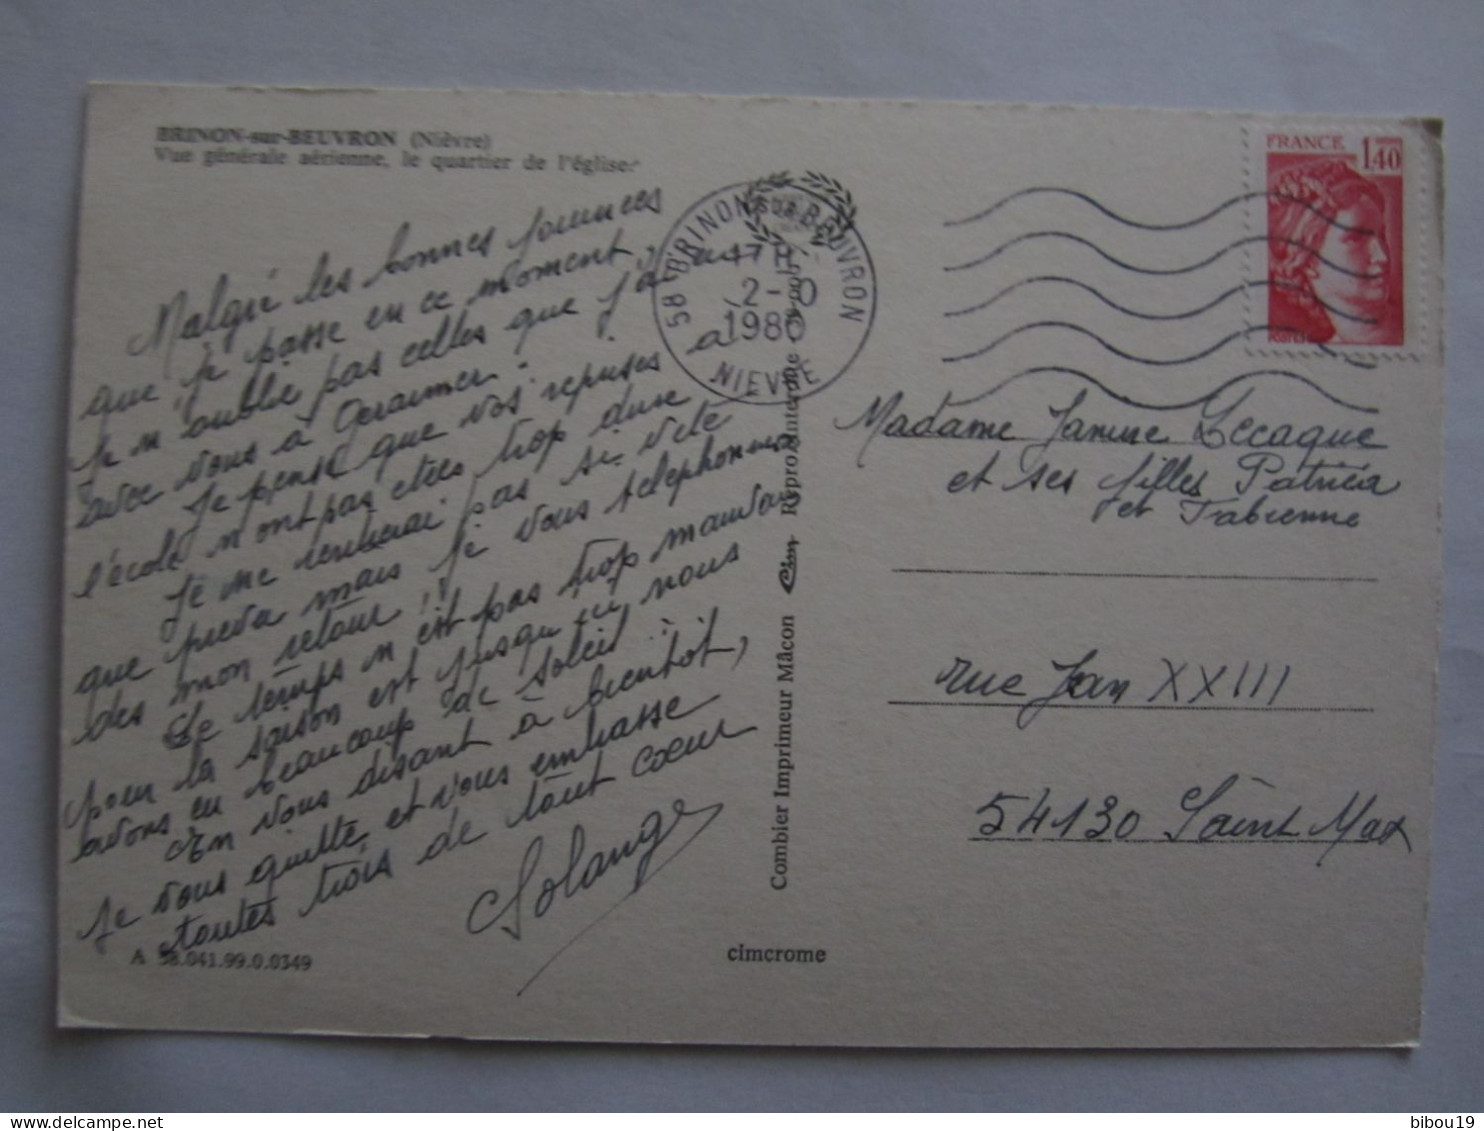 BRINON-sur-BEUVRON (Nièvre)
Vue générale aérienne, le quartier de l'église.
Malgré les bonnes journées
que je passe en ce moment,
je n'oublie pas celles que j'ai eu
avec vous à Gerarmer.
Je pense que vos reprises à
l'école n'ont pas étées trop dure
Je ne rentrerai pas si vite
que prevu mais je vous telephonerai
des mon retour !
Le temps n'est pas trop mauvais
pour la saison et jusqu'ici nous
avons eu beaucoup de soleil
En vous disant à bientôt,
je vous quitte et vous embrasse
toutes trois de tout cœur
Solange
A 58.041.99.0.0349
58 BRINON SUR BEUVRON
17H
2-
1980
NIEVRE
Combier Imprimeur Mâcon Cim Repro
cimcrome
FRANCE 1,40
Madame Janine Lecaque
et ses filles Patricia
et Fabienne
rue Jean XXIII
54130 Saint Max
bibou19